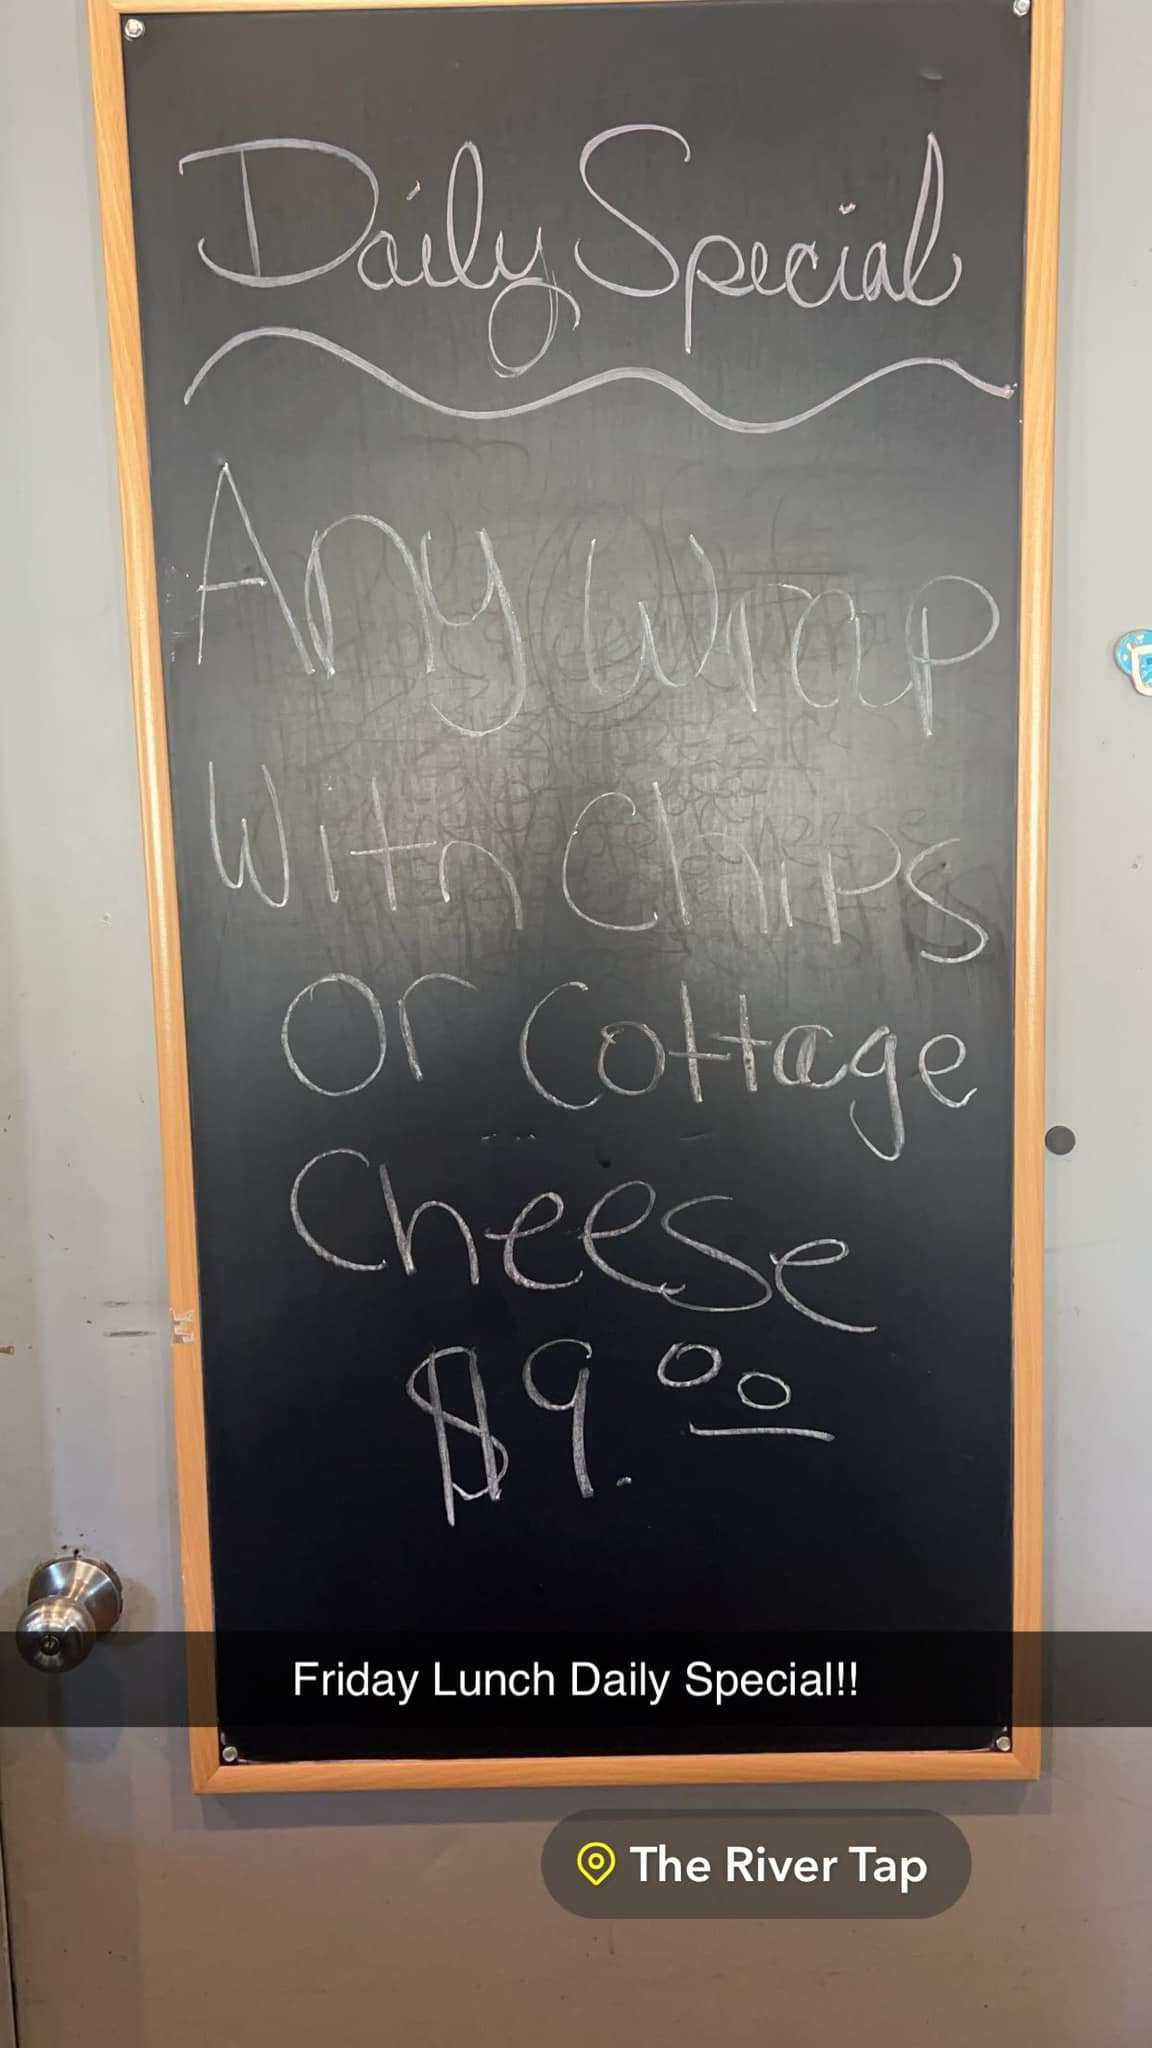 Daily Special
Any Wrap
With Chips
Or Cottage
Cheese
$9.00
Friday Lunch Daily Special!!
The River Tap